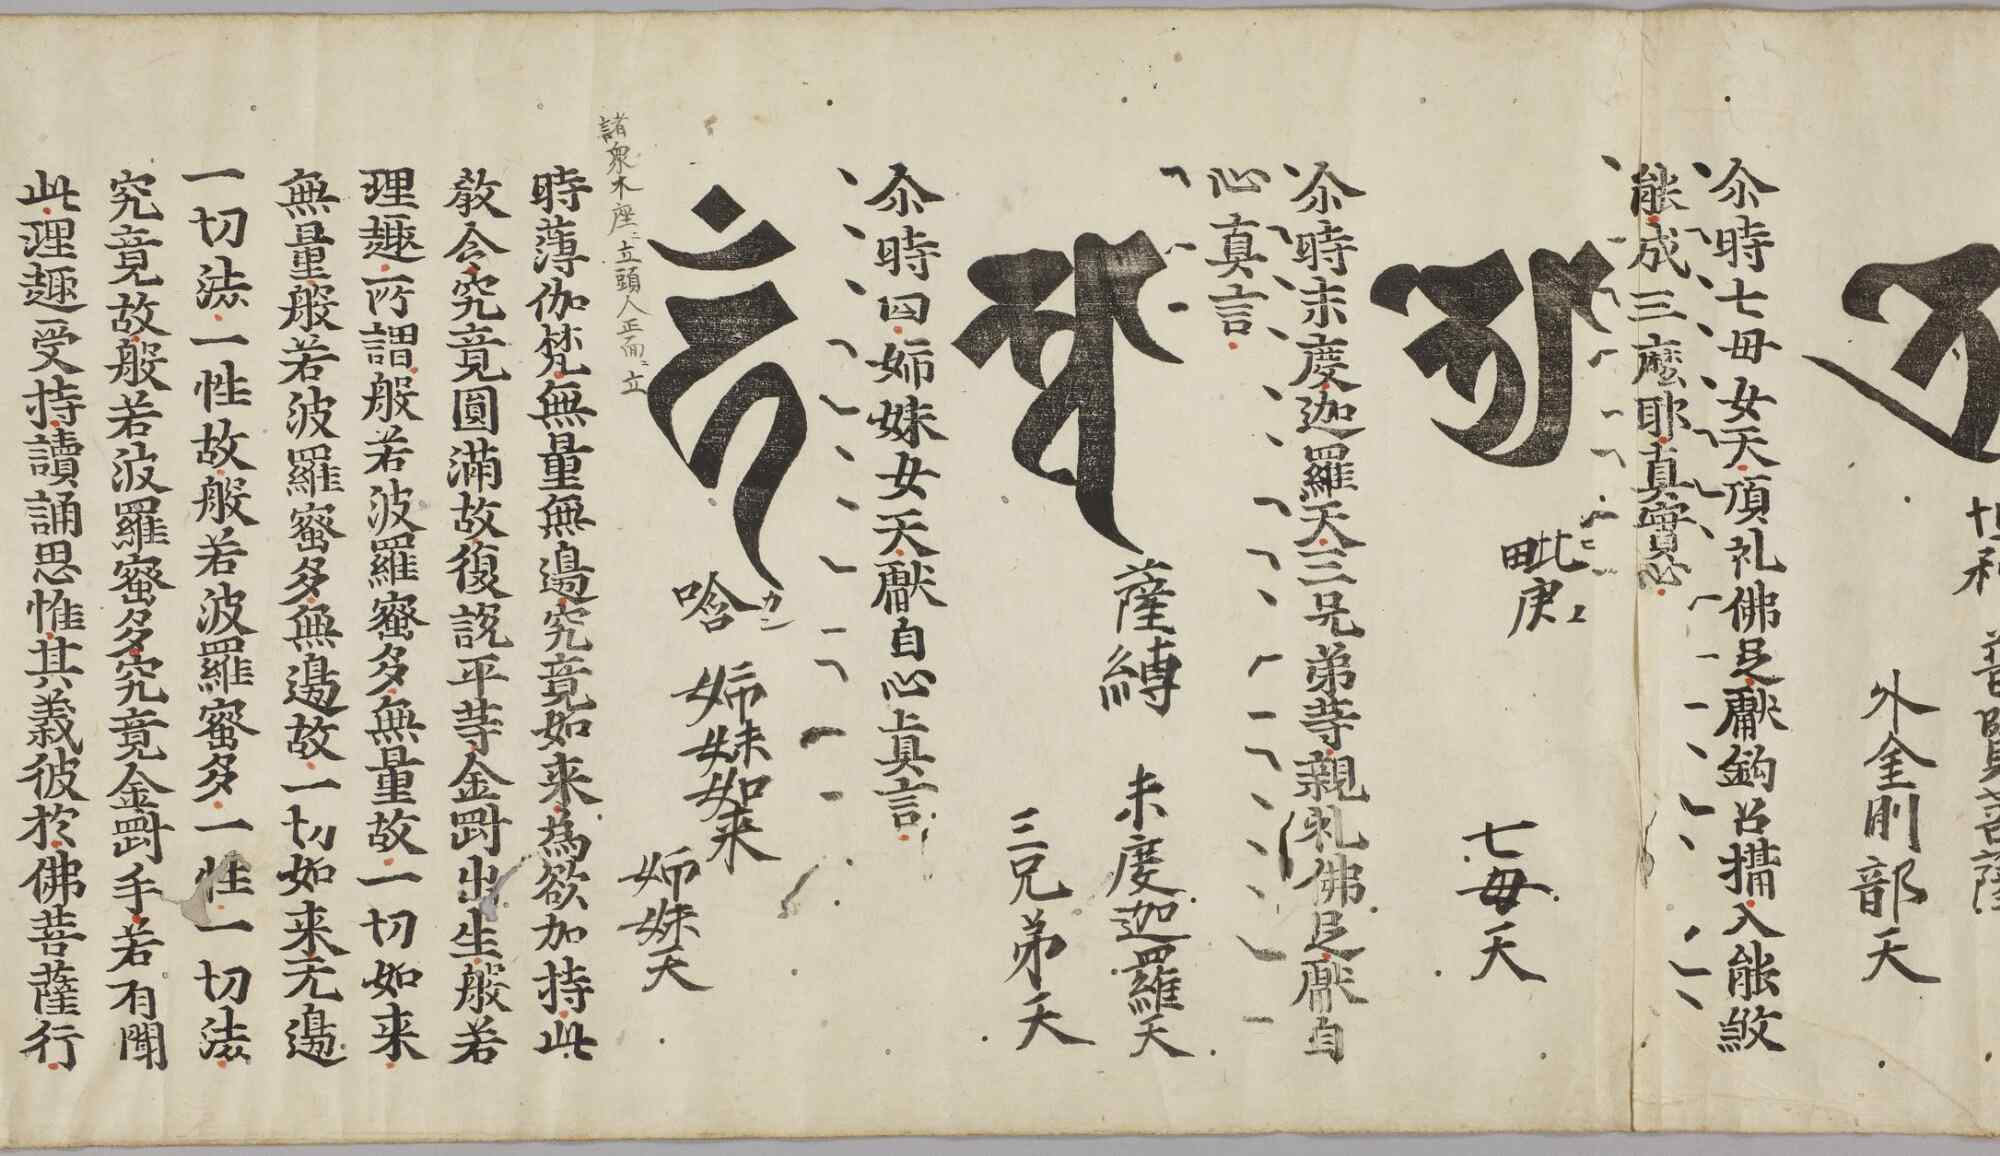 普賢菩薩
外金剛部天
尒時七母女天頂礼佛足獻鉤召攝入能敓
能成三麽耶真實心
毗庚
七母天
尒時末度迦羅天三兄弟等親礼佛足獻自
心真言
薩縛
末度迦羅天
三兄弟天
尒時四姉妹女天獻自心真言
唅
姉妹如来
姉妹天
諸衆木座立頭人正面立
時薄伽梵無量無邊究竟如来為欲加持此
教令究竟圓滿故復説平等金剛出生般若
理趣所謂般若波羅蜜多無量故一切如来
無量般若波羅蜜多無邊故一切如来无邊
一切法一性故般若波羅蜜多一性一切法
究竟故般若波羅蜜多究竟金剛手若有聞
此理趣受持讀誦思惟其義彼於佛菩薩行